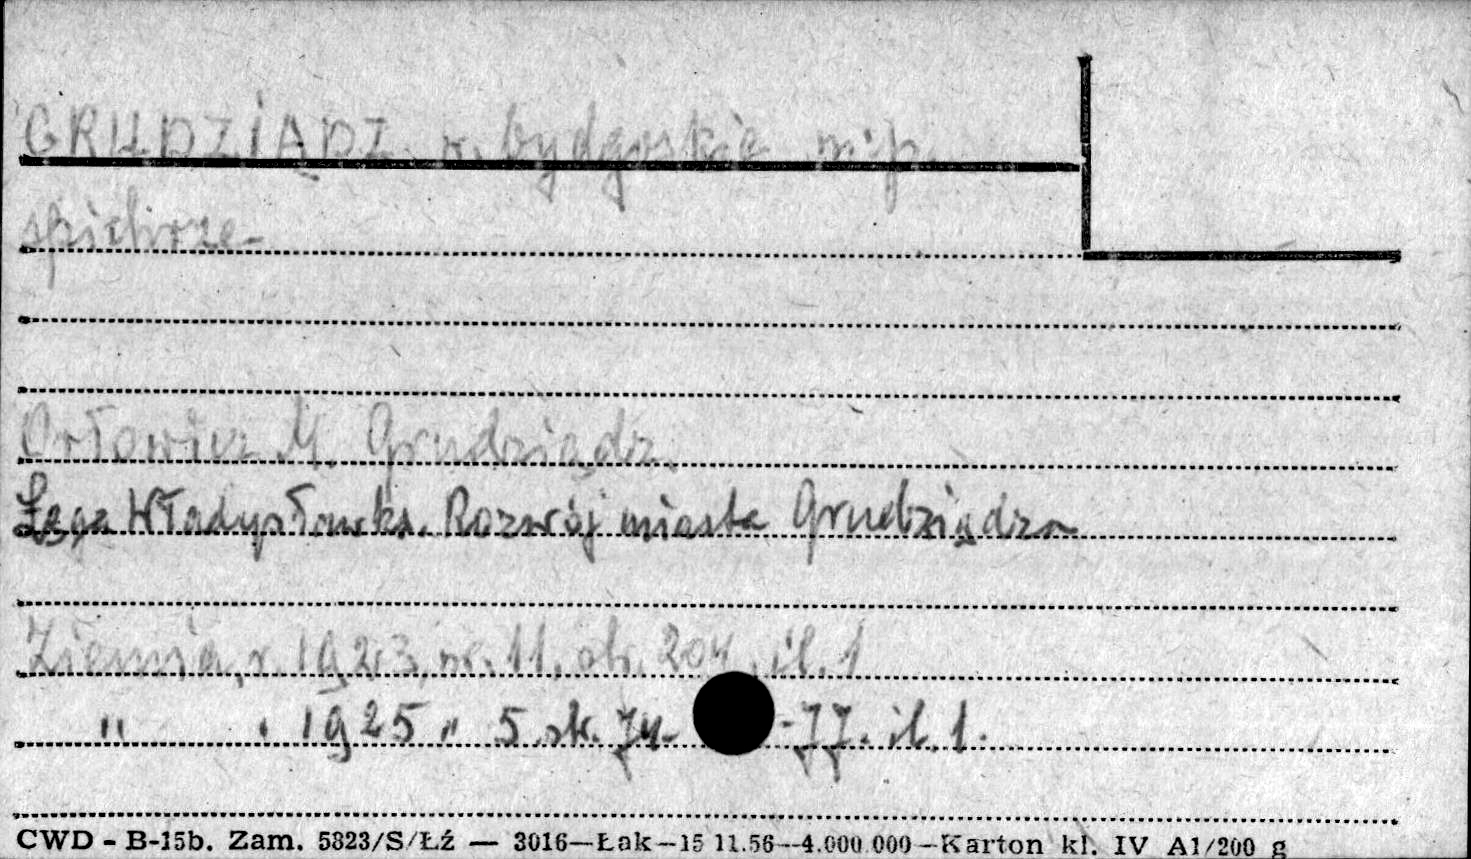 GRUDZIĄDZ w. bydgoskie m.p.
spichrze-
Orłowicz M. Grudziądz.
Łęga Władysław ks. Rozwój miasta Grudziądza
Ziemia, r. 1923, nr. 11, str. 204, il. 1
" . 1925 " 5 str. 74- -77. il. 1.
CWD - B-15b. Zam. 5823/S/Łź — 3016—Łak—15 11.56—4.000 000—Karton kl. IV A1/200 g